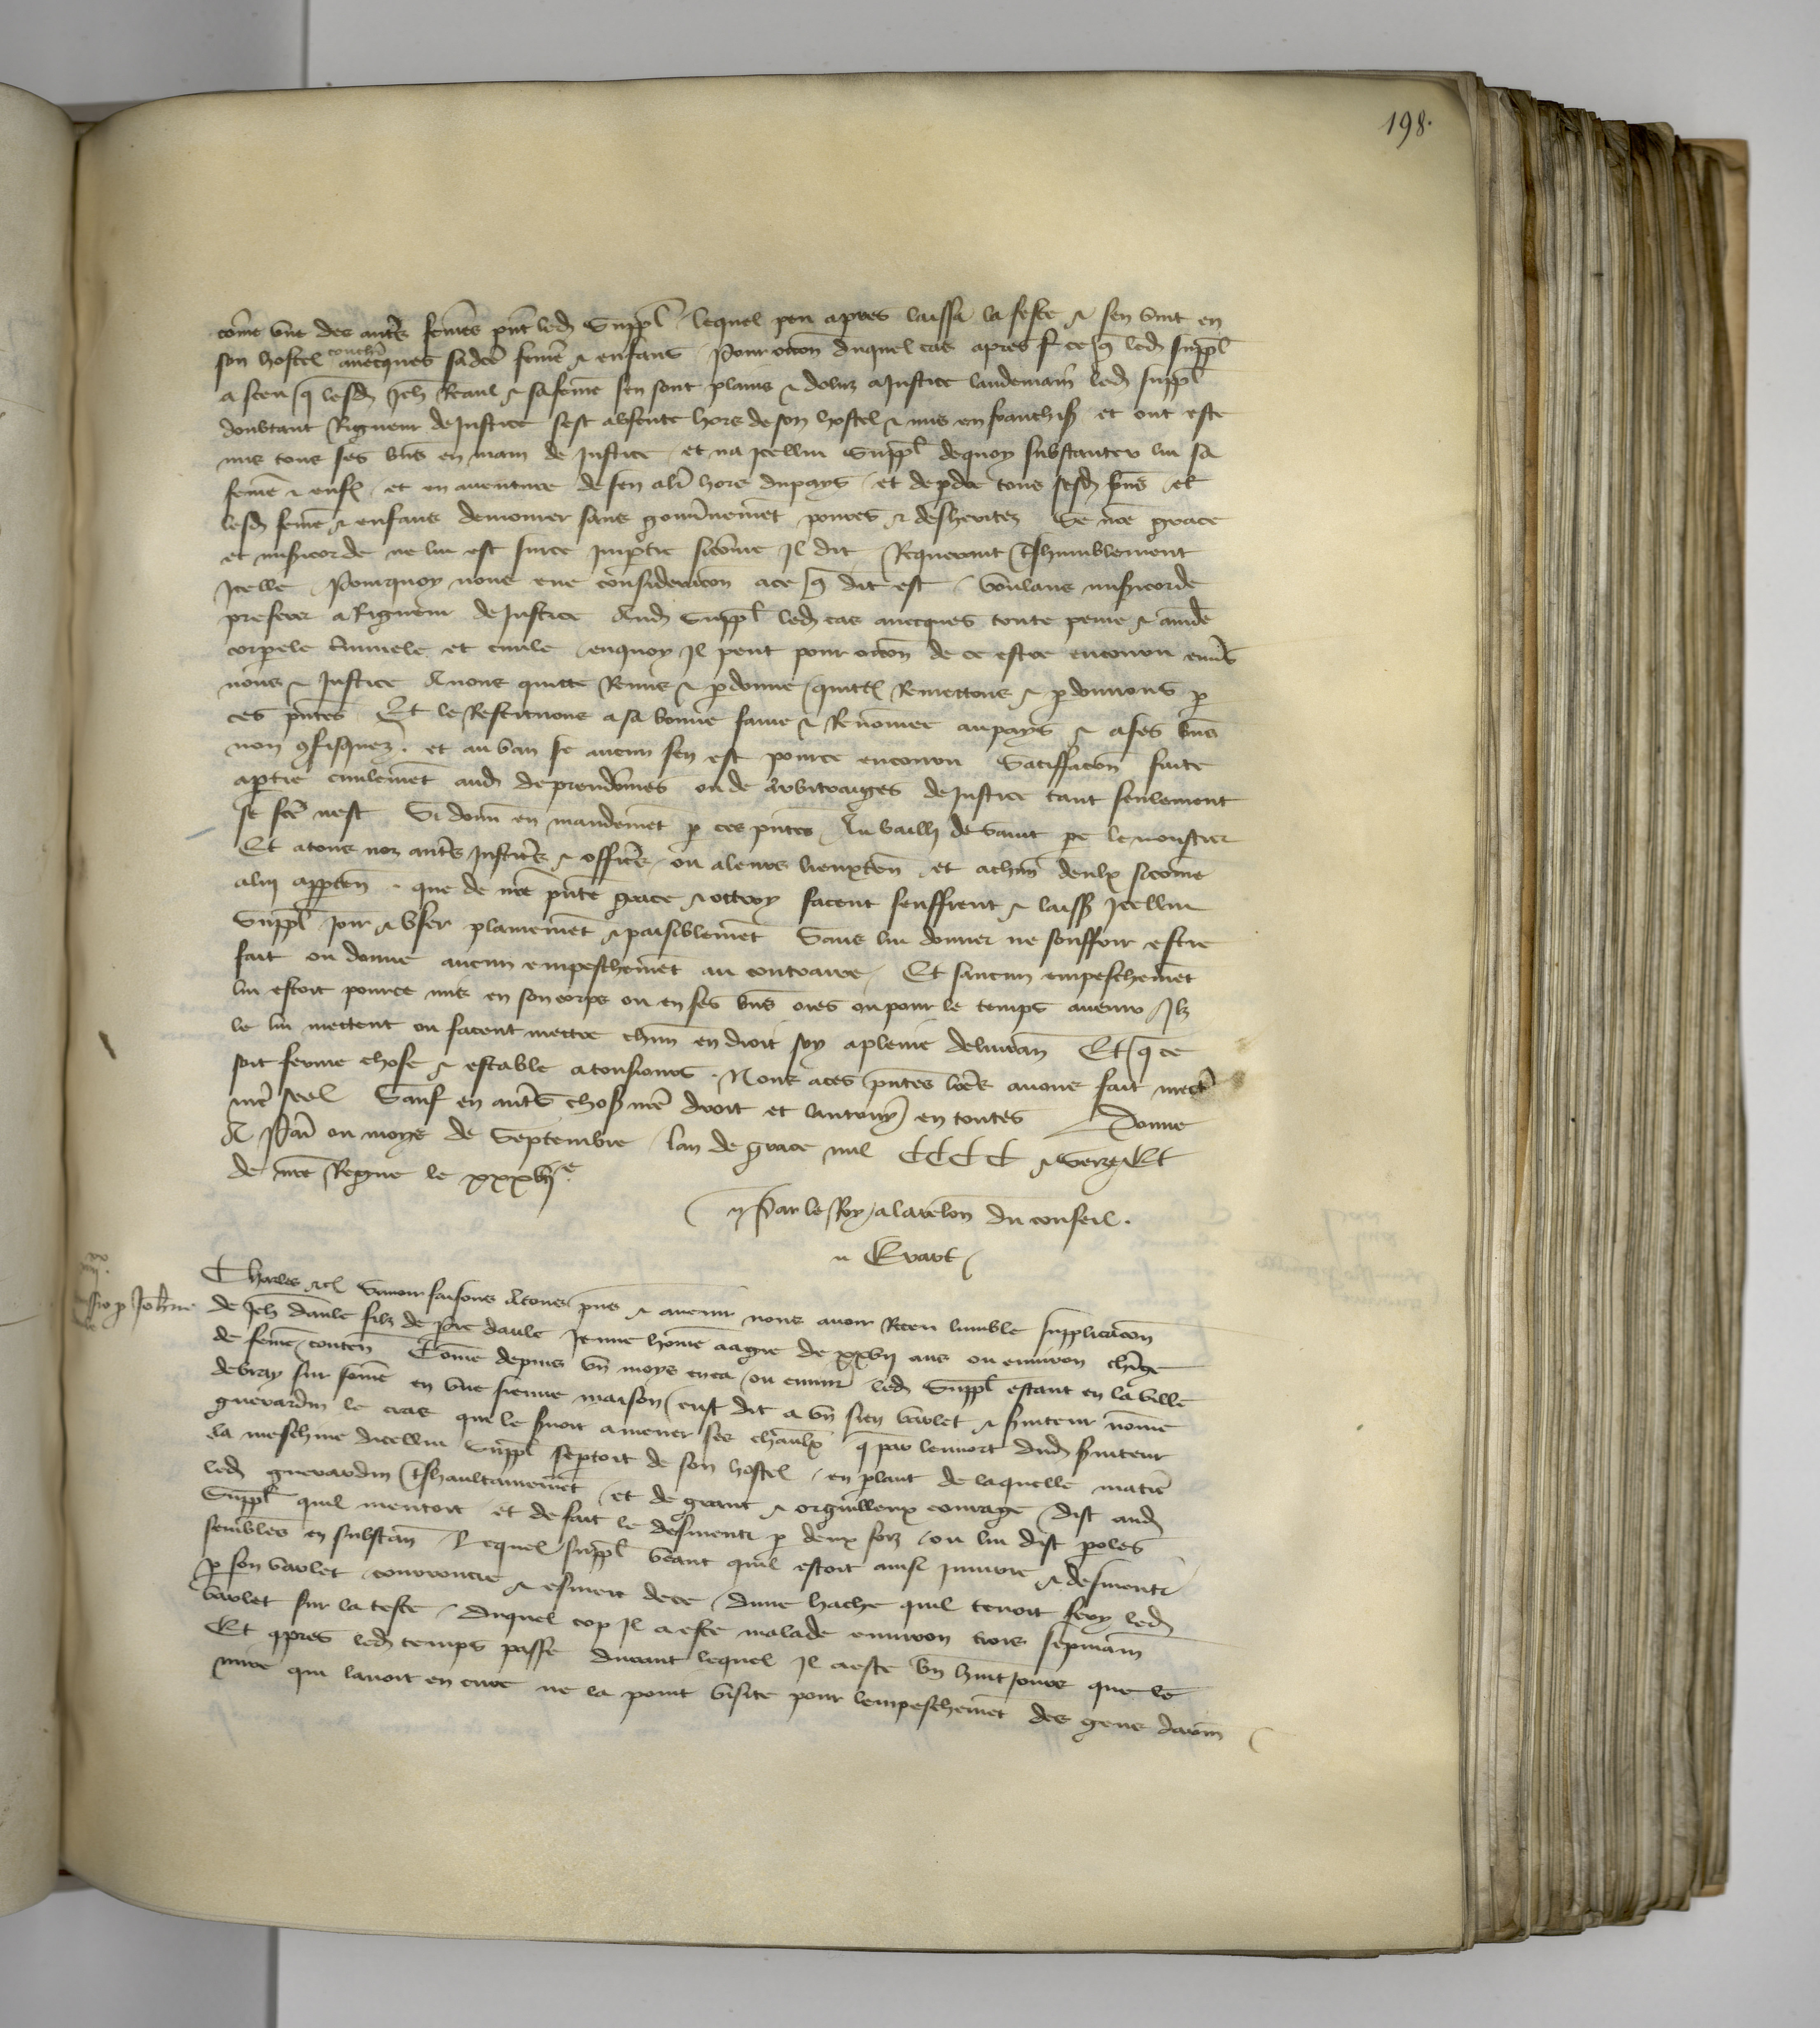 198.
come une des autres femes pnt led Suppl lequel peu apres laissa la feste & sen vint en
son hostel couchier avecques sadce feme & enfans Pour occon duquel cas apres ce q led suppl
a sceu q lesd Jeh Raul & sa feme sen sont plains & doluz a Justice landemain led suppl
doubtant Rigueur de Justice sest absente hors de son hostel & mis en franchise et ont este
mis tous ses bns en main de Justice et na icellui Suppl dequoy substanter lui sa
feme & enf et en aventure de sen aler hors du pays et de pdre tous sesd bns et
lesd feme & enfans demourer sans gouvnemet povres & desheritez Se nre grace
et misicorde ne lui est sur ce impartie sicome Il dit Requerant tshumblement
Icelle Pourquoy nous eue consideracon a ce q dit est voulans misicorde
preferer a Rigueur de Justice Aud Suppl led cas avecques toute peine & amde
corporele criminele et civile enquoy Il peut pour occon de ce estre encouru envs
nous & Justice Avons quitte Remis & pdonne quittons Remettons & pdonnons p
ces pntes Et le Restituons a sa bonne fame & Renomee au pays & a ses bns
non cfisquez. et au ban se aucun sen est pource encouru Satisfacon faite
a partie civilemet aud de preudomes ou de Arbitraiges de Justice tant seulement
se fce nest Si donn en mandemet p ces pntes Au bailli de Saint pe le moustier
Et a tous noz autres Justiciers & officiers ou a leurs lieuxten et a chun deulx sicome
a lui apptien que de nre pnte grace & ottroy facent seuffrent & laissent Icellui
Suppl Joir & user plainemet & paisiblemet Sans lui donner ne souffrir estre
fait ou donne aucun empeschemet au contraire Et saucun empeschemet
lui estoit pource mis en son corps ou en ses bns ores ou pour le temps avenir Ilz
le lui mettent ou facent mettre chun en droit soy a pleine delivran Et q ce
soit ferme chose & estable a tousiours Nous a ces pntes lres avons fait mectre
nre seel Sauf en autres choses nre droit et lautruy en toutes Donne
A Par ou moys de Septembre lan de grace mil CCCC & seze Et
de nre Regne le xxxvije
Par le Roy a la relon du conseil.
Evrart
Charles &c Savoir faisons A tous pns & avenir nous avoir Receu lumble supplicacon
de Jeh daule filz de Pre daule Jeune home aagie de xxvij ans ou environ chargie
de feme conten Come depuis un moys enca ou environ led Suppl estant en la ville
de bray sur some en une sienne maison eust dit a un sien varlet & sviteur nome
guerardin le cras qui le svoit a mener ses chevaulx q par lennort dud sviteur
la meschine dicellui Suppl septoit de son hostel en plant de laquelle matie
led guerardin tshaultainemet et de grant & orguilleux courage dist aud
Suppl quil mentoit et de fait le desmenti p deux foiz ou lui dist proles
semblles en substan Lequel suppl veant quil estoit ainsi iniurie & desmenti
p son varlet courroucie & esmeu de ce dune hache quil tenoit fery led
varlet sur la teste duquel cop Il a este malade environ trois sepmain
Et apres led temps passe durant lequel Il a este un huit Jours que le
mire qui lavoit en cure ne la point visite pour lempeschemet des gens darm